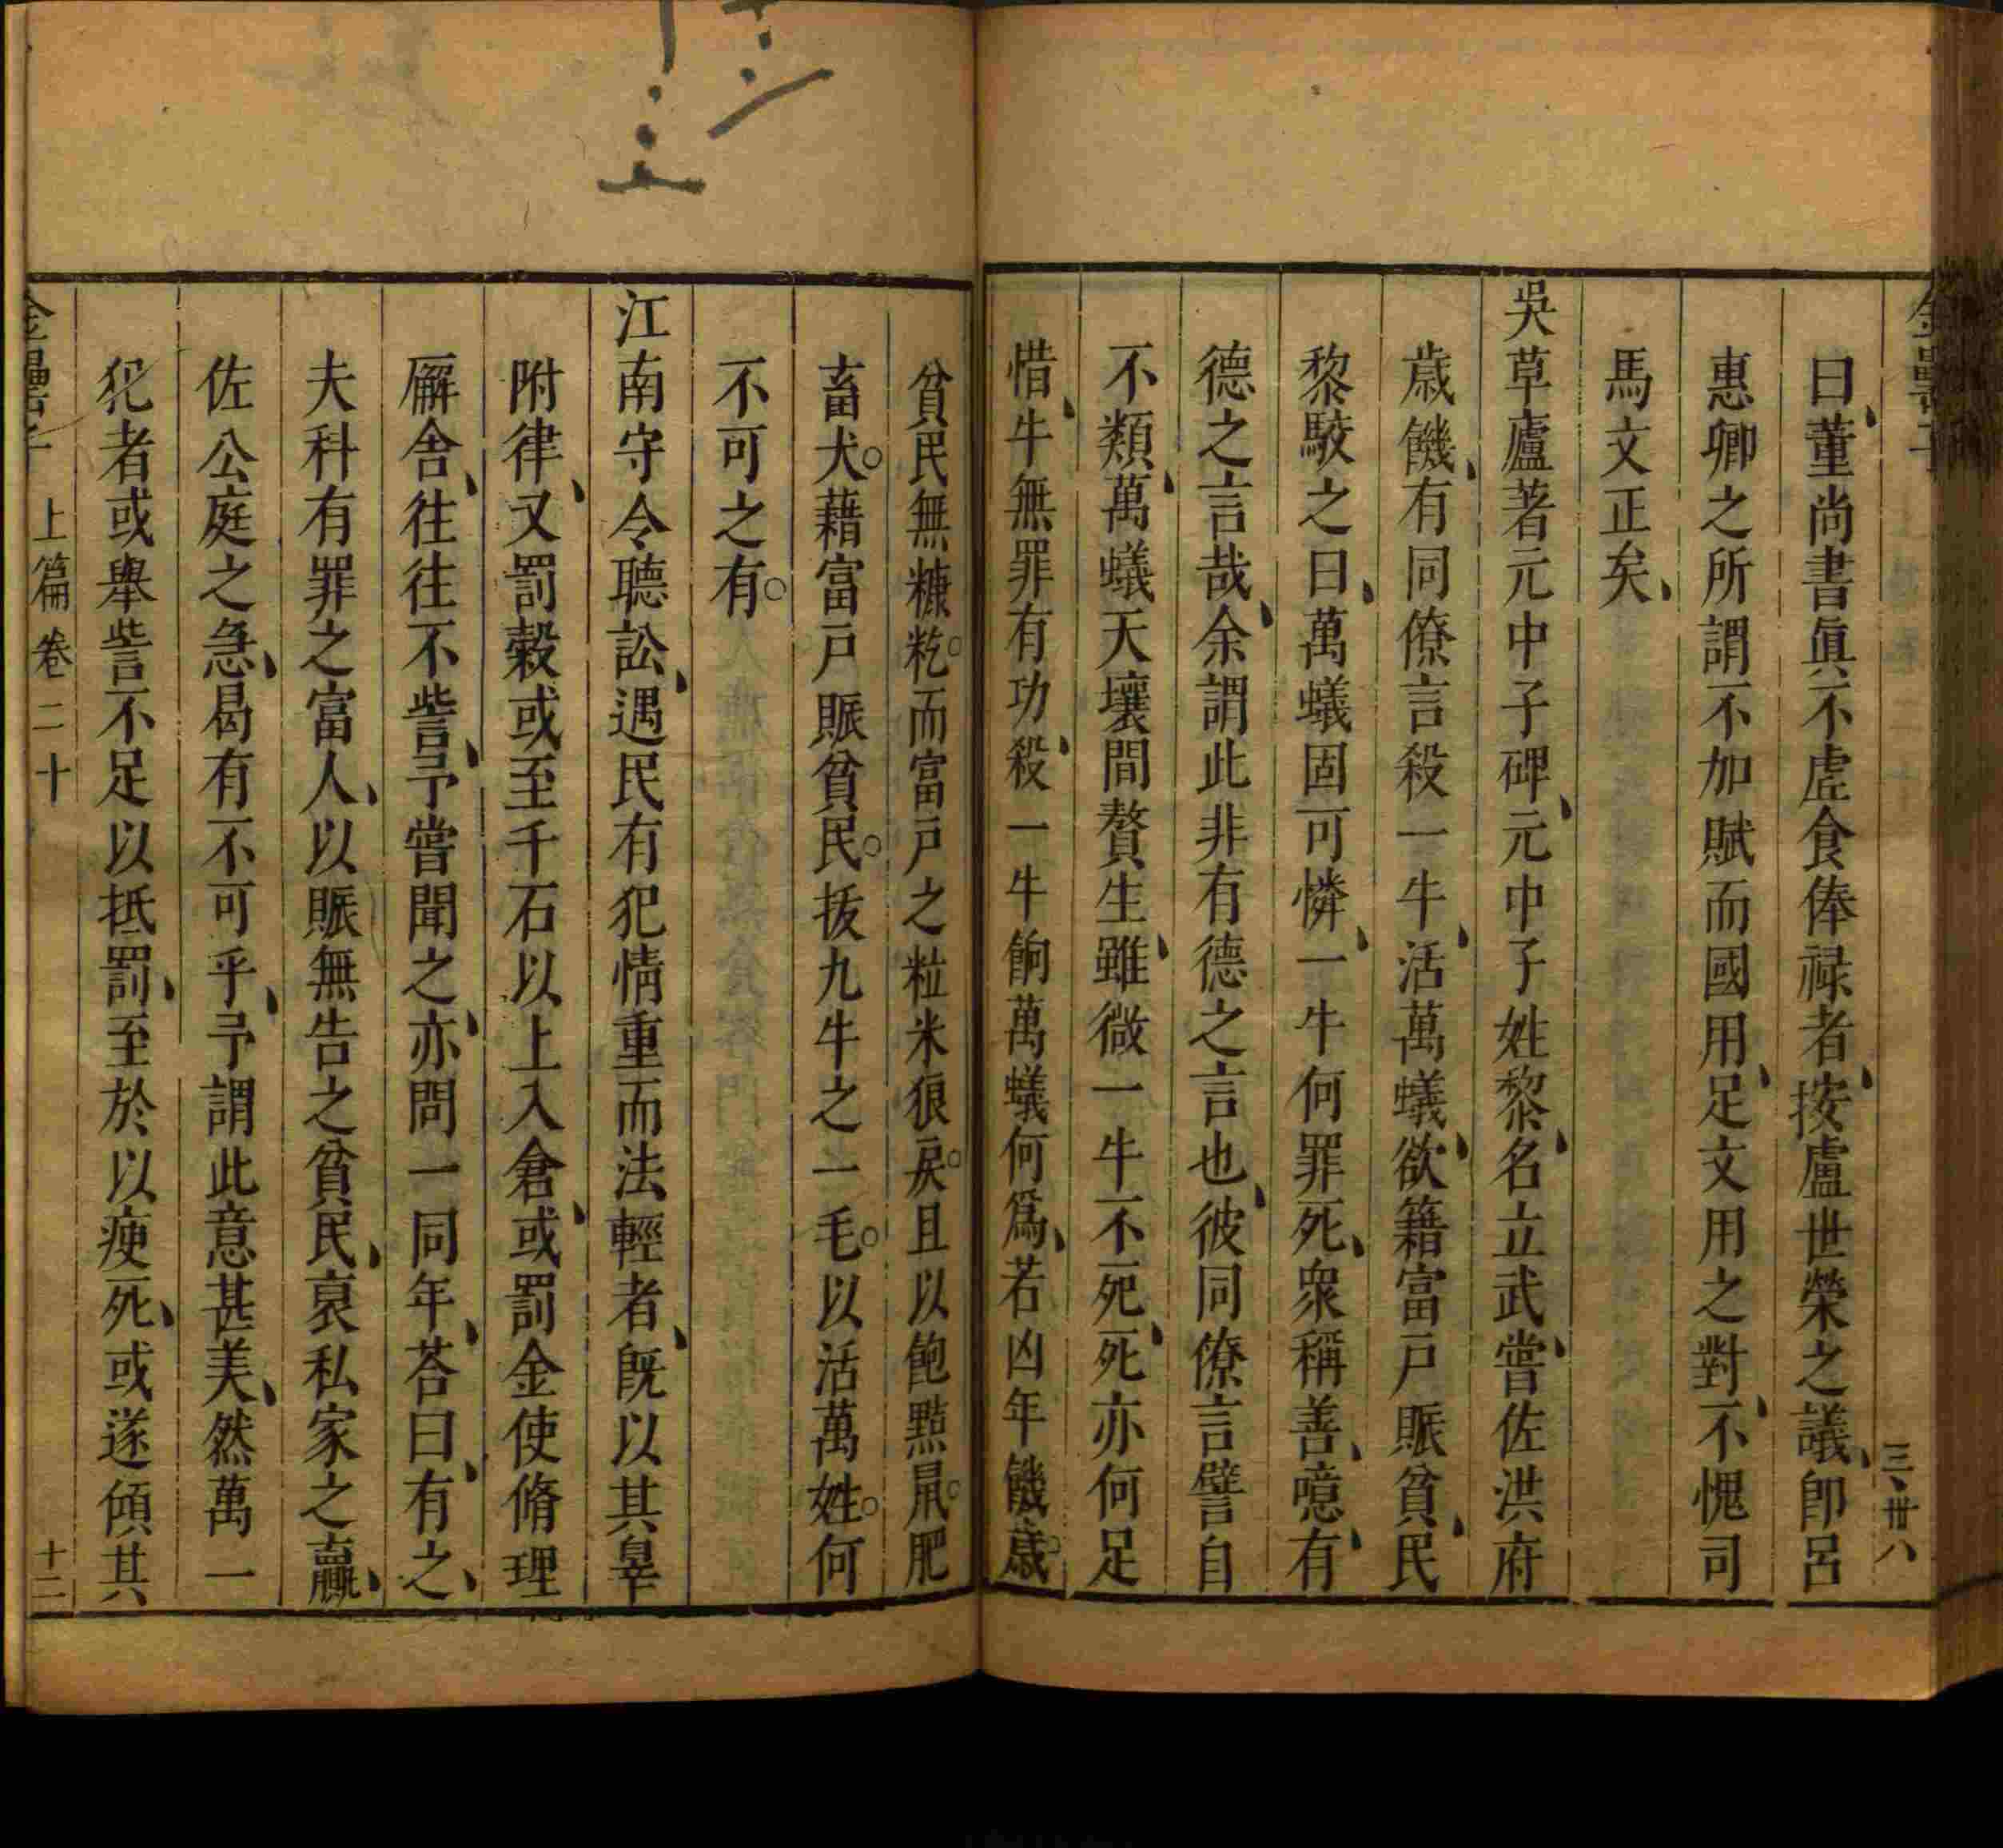 三、卅八
曰、董尚書眞不虗食俸禄者、按盧世榮之議、卽呂
惠卿之所謂不加賦而國用、足文用之對、不愧司
馬文正矣、
吳草廬著元中子碑、元中子姓黎、名立武、嘗佐洪府
歲饑、有同僚言殺一牛、活萬蟻、欲籍富戸賑貧、民
黎駮之曰、萬蟻固可憐、一牛何罪死、衆稱善、噫、有
德之言哉、余謂此非有德之言也、彼同僚言譬自
不類、萬蟻天壤間贅生、雖微一牛不死、死亦何足
惜、牛無罪有功、殺一牛餉萬蟻何爲、若凶年饑歲。
貧民無糠籺。而富戸之粒米狼戾。且以飽黠鼠。肥
畜犬。藉富戸賑貧民。拔九牛之一毛。以活萬姓。何
不可之有。
江南守令聽訟、遇民有犯情重而法輕者、旣以其辠
附律、又罰穀或至千石以上入倉、或罰金使脩理
廨舍、往往不訾、予嘗聞之、亦問一同年、荅曰、有之、
夫科有罪之富人、以賑無告之貧民、裒私家之贏、
佐公庭之急、曷有不可乎、予謂此意甚美、然萬一
犯者或舉訾不足以抵罰、至於以瘐死、或遂傾其
金罍子 上篇卷二十 十二